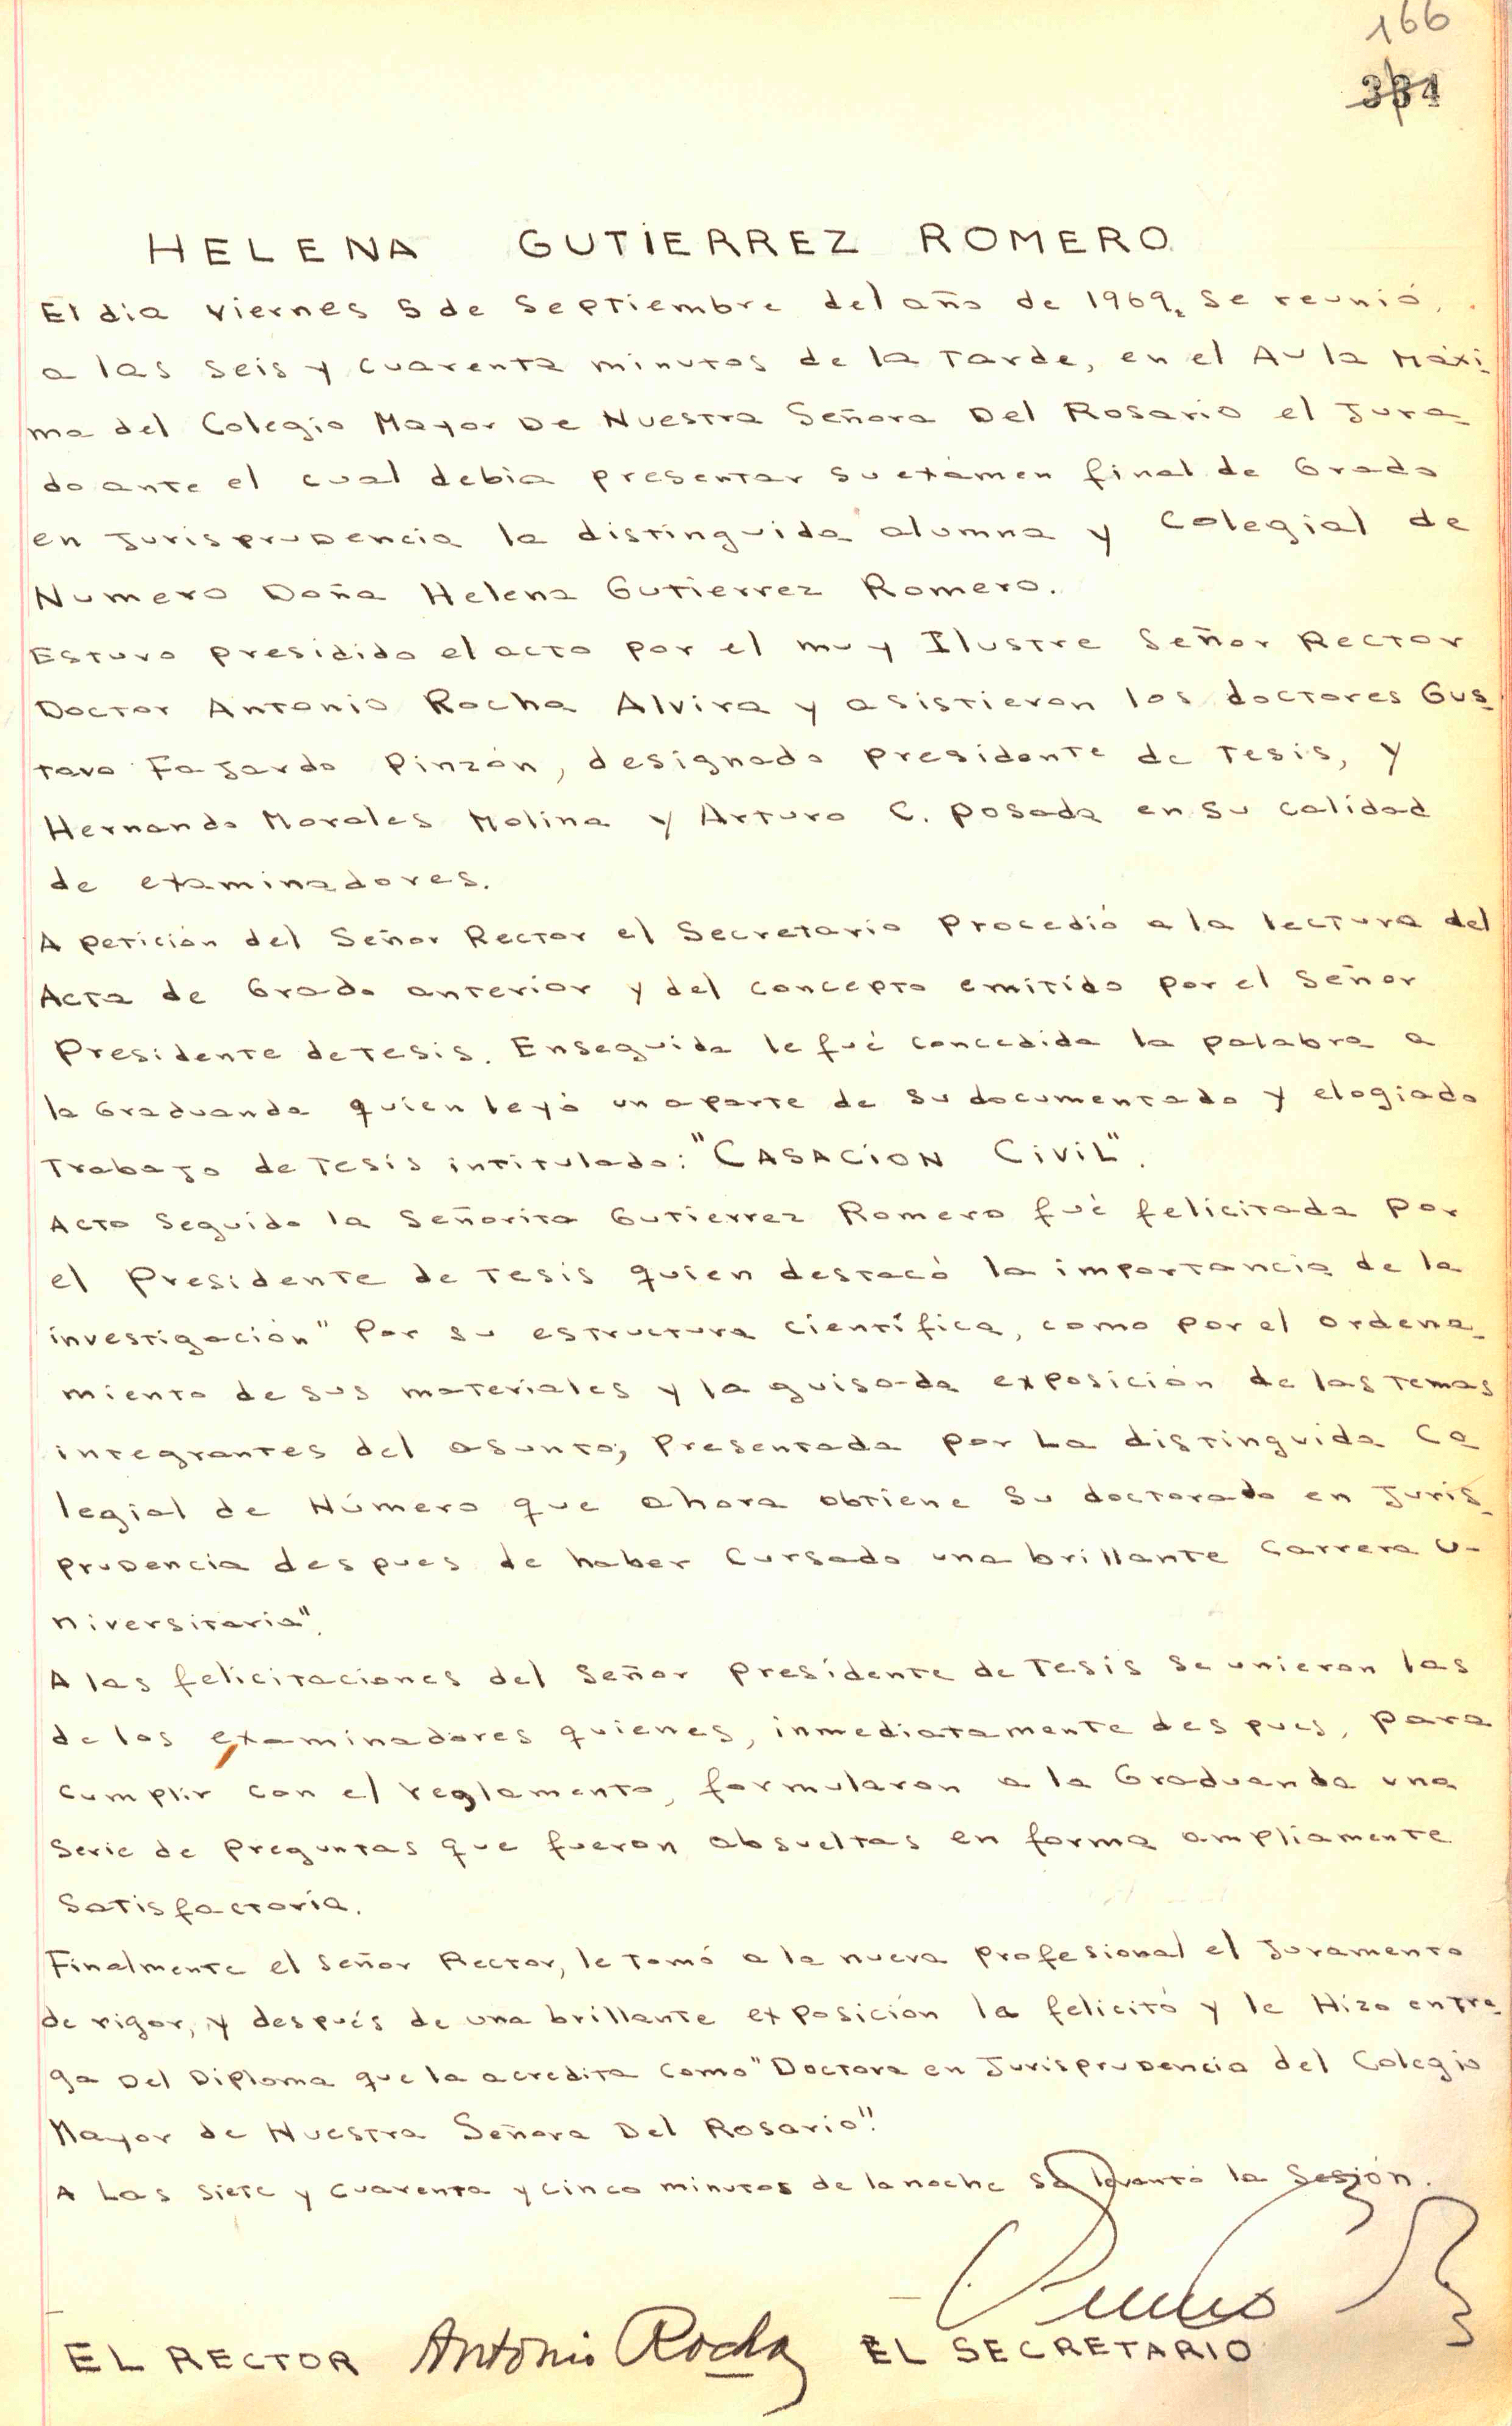 166
331
HELENA GUTIERREZ ROMERO
El dia viernes 5 de Septiembre del año de 1969, se reunió,
a las seis y cuarenta minutos de la tarde, en el Aula Máxi
ma del Colegio Mayor De Nuestra Señora Del Rosario el Jura
do ante el cual debia presentar su exámen final de Grado
en Jurisprudencia la distinguida alumna y Colegial de
Numero Doña Helena Gutierrez Romero.
Estuvo presidido el acto por el muy Ilustre Señor Rector
Doctor Antonio Rocha Alvira y asistieron los doctores Gus
tavo Fajardo Pinzón, designado presidente de tesis, y
Hernando Morales Molina y Arturo C. Posada en su calidad
de examinadores.
A petición del Señor Rector el Secretario Procedió a la lectura del
Acta de Grado anterior y del concepto emitido por el Señor
Presidente de tesis. Enseguida le fué concedida la palabra a
la Graduanda quien leyó una parte de su documentado y elogiado
Trabajo de Tesis intitulado: "CASACION CIVIL".
Acto Seguido la Señorita Gutierrez Romero fué felicitada Por
el Presidente de Tesis quien destacó la importancia de la
investigación" Por su estructura científica, como por el ordena
miento de sus materiales y la guisada exposición de los temas
integrantes del asunto, Presentada por La distinguida Co
legial de Número que ahora obtiene su doctorado en Juris
prudencia despues de haber Cursado una brillante Carrera U-
niversitaria".
A las felicitaciones del Señor Presidente de Tesis se unieron las
de los examinadores quienes, inmediatamente despues, para
cumplir con el reglamento, formularon a la Graduanda una
Serie de Preguntas que fueron absueltas en forma ampliamente
Satisfactoria.
Finalmente el Señor Rector, le tomó a la nueva Profesional el Juramento
de rigor, y después de una brillante exposición la felicitó y le Hizo entre
ga Del Diploma que la acredita Como "Doctora en Jurisprudencia del Colegio
Mayor de Nuestra Señora Del Rosario".
A Las siete y cuarenta y cinco minutos de la noche se levantó la Sesión.
EL RECTOR Antonio Rocha EL SECRETARIO